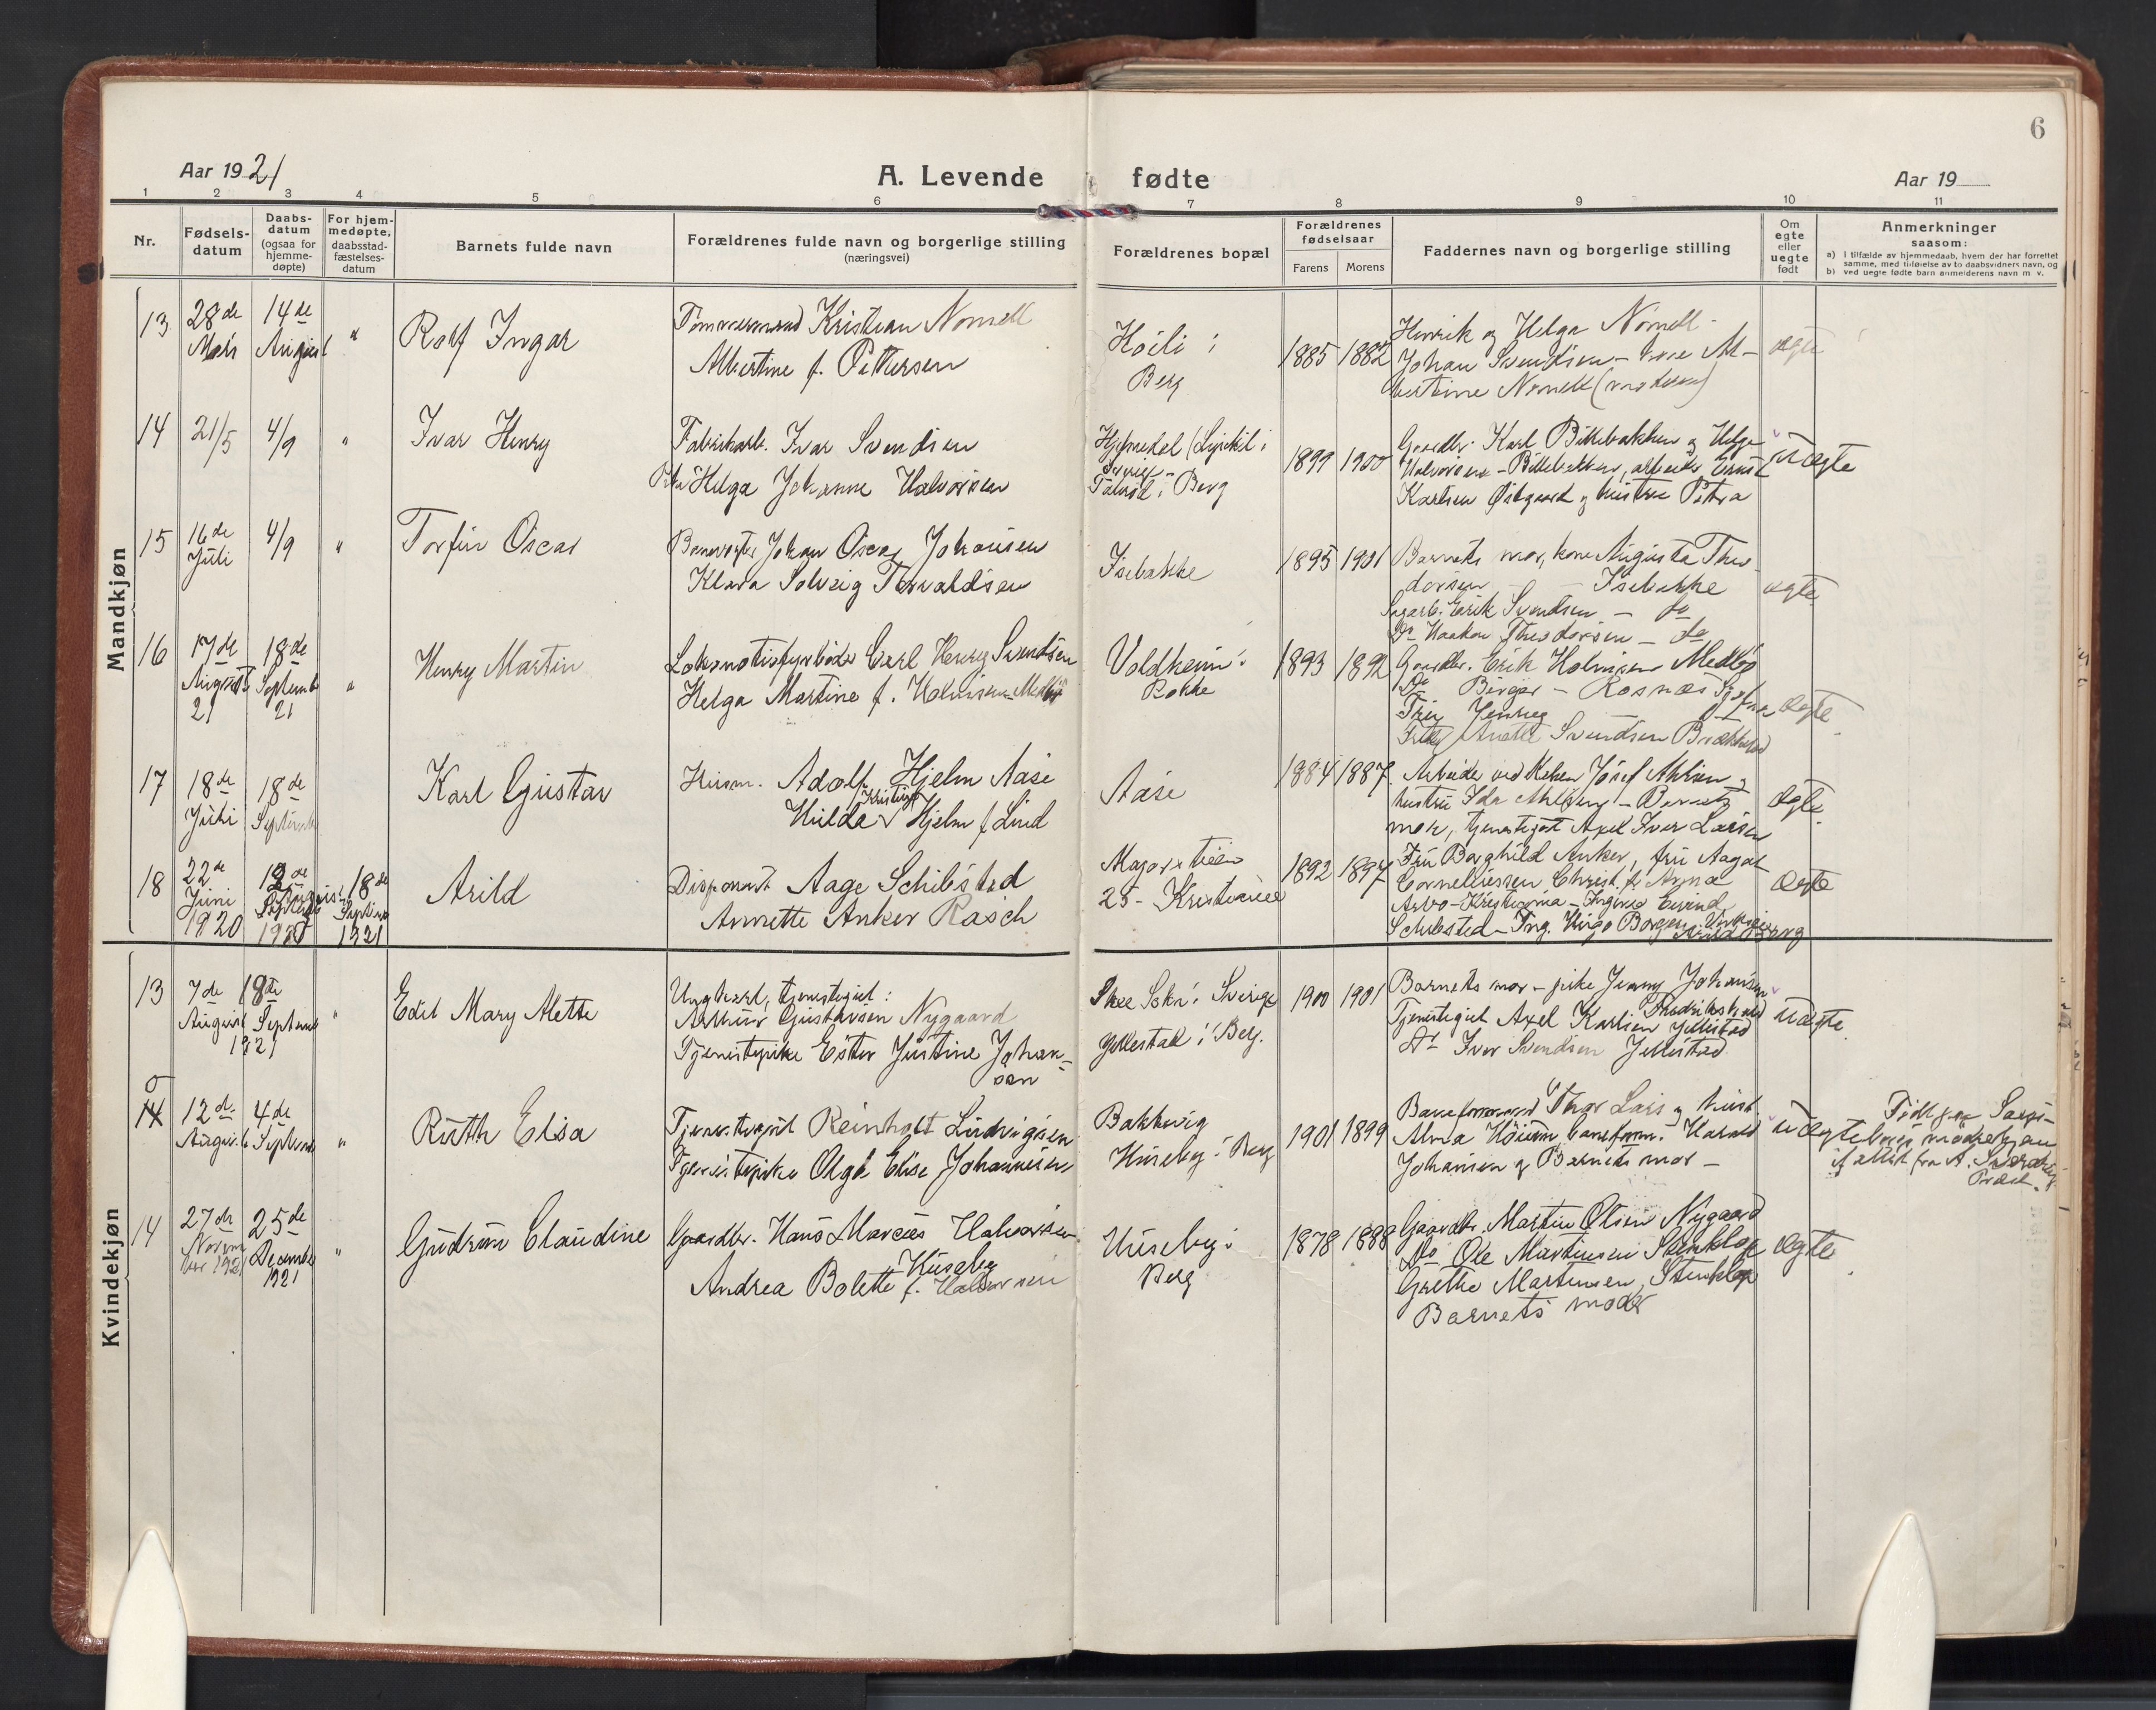 6
Aar 1921
A. Levende fødte
Aar 19
1 2 3 4 5 6 7 8 9 10 11
Nr.
Fødsels-
datum
Daabs-
datum
(ogsaa for
hjemme-
døpte)
For hjem-
medøpte,
daabsstad-
fæstelses-
datum
Barnets fulde navn
Forældrenes fulde navn og borgerlige stilling
(næringsvei)
Forældrenes bopæl
Forældrenes
fødselsaar
Farens Morens
Faddernes navn og borgerlige stilling
Om
egte
eller
uegte
født
Anmerkninger
saasom:
a) i tilfælde av hjemmedaab, hvem der har forrettet
samme, med tilføielse av to daabsvidners navn, og
b) ved uegte fødte barn anmelderens navn m. v.
Mandkjøn
13
28de
Mars
14de
August
"
Rolf Ingar
Tømmermand Kristian Nomell
Albertine f. Pettersen
Høili i
Berg
1885 1882
Henrik og Helga Nomell
Johan Svendsen - kone Al-
bertine Nomell (moderen)
ægte
14
21/5
4/9
"
Ivar Henry
Fabrikarb. Ivar Svendsen
Pike Helga Johanne Halvorsen
i Berg
1899 1900
Gaardbr. Karl Billebakken og Helga
Halvorsen - Billebakken, arbeider Ernst
Karlsen Østgaard og hustru Petra
Uægte
15
16de
Juli
4/9
"
Torfin Oscar
Banevogter Johan Oscar Johansen
Klara Solveig Torvaldsen
Isebakke
1895 1901
Barnets mor, kone Augusta Theo-
dorsen Isebakke
Erik Svendsen - do
Do Haakon Theodorsen - do
ægte
16
17de
August
21
18de
Septemb
21
"
Henry Martin
Lokomotivfyrbøder Carl Henry Svendsen
Helga Martine f. Holmsen - Medbø
Voldheim i
Rokke
1893 1892
Gaardbr. Erik Holmsen Medbø
Do Birger - Rosnæs
Svendsen
ægte
17
18de
Juli
18de
September
Karl Gustav
Husm. Adolf Hjelm Aase
Hilda Kristine Hjelm f. Lind
Aase
1884 1887
Arbeider ved Josef Ahlberg og
hustru Ida Ahlberg - Barnets
mor, tjenestegut Axel Iver Larsen
Ægte
18
22de
Juni
1920
18de
Septbr
1921
Arild
Disponent Aage Schibsted
Annette Anker Rasch
Majorstuen
25 - Kristiania
1892 1897
Fru Borghild Anker, fru Aagot
Corneliussen Christ. fr Anna
Arbo - Kristiania - Ingeniør Eivind
Schibsted - Ing. Hugo Borgen
Ægte
Kvindekjøn
13
7de
August
1921
18de
Septemb
"
Edit Mary Alette
Ungkarl, tjenestegut:
Arthur Gustavsen Nygaard
Tjenestepike Ester Justine Johan-
sen
Skee Sokn i Sverige
Gjellestad i Berg.
1900 1901
Barnets mor - pike Jenny Johansen
Fredrikshald
Tjenestegut Axel Karlsen Jellestad
Do Iver Svendsen Jellestad
Uægte
14
12de
August
4de
Septemb
"
Ruth Elsa
Tjenestegut Reinholt Ludvigsen
Tjenestepike Olga Elise Johannesen
Bakkevig
Huseby i Berg
1901 1899
Baneformand Thor Lars og hust.
Alma baneform. Harald
Johansen og Barnets mor -
Uægte
Født paa Sarps-
borg mødrehjem
Attest fra A.
Præst.
14
27de
Novem
ber 1921
25de
December
1921
"
Gudrun Claudine
Gaardbr. Hans Marcus Halvorsen
Huseby
Andrea Bolette f. Halvorsen
Huseby i
Berg
1878 1888
Gaardbr. Martin Olsen Nygaard
Do Ole Martinsen Stenklop
Grethe Martinsen, Stenklop
Barnets moder
Ægte